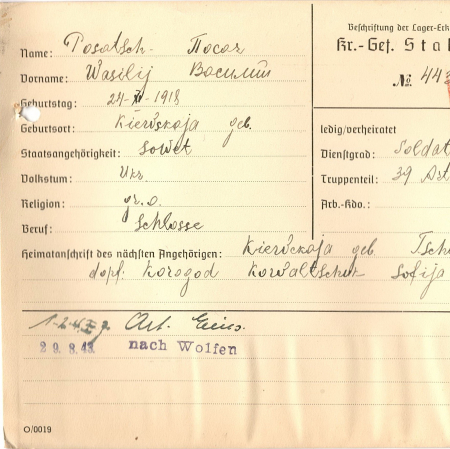 Beschriftung der Lager-Erk
Kr.-Gef. Sta
№ 44
Name: Posatsch- Посач
Vorname: Wasilij Василий
Geburtstag: 24-XI-1918
Geburtsort: Kiewskaja geb.
Staatsangehörigkeit: Sowet
Volkstum: Ukr.
Religion: gr.o.
Beruf: Schlosse
ledig/verheiratet
Dienstgrad: Soldat
Truppenteil: 39 Art
Arb.-Kdo.:
Heimatanschrift des nächsten Angehörigen: Kiewskaja geb. Tsch
dorf. Korogod Kowaltschuk Sofija
Art.
29.8.43. nach Wolfen
O/0019